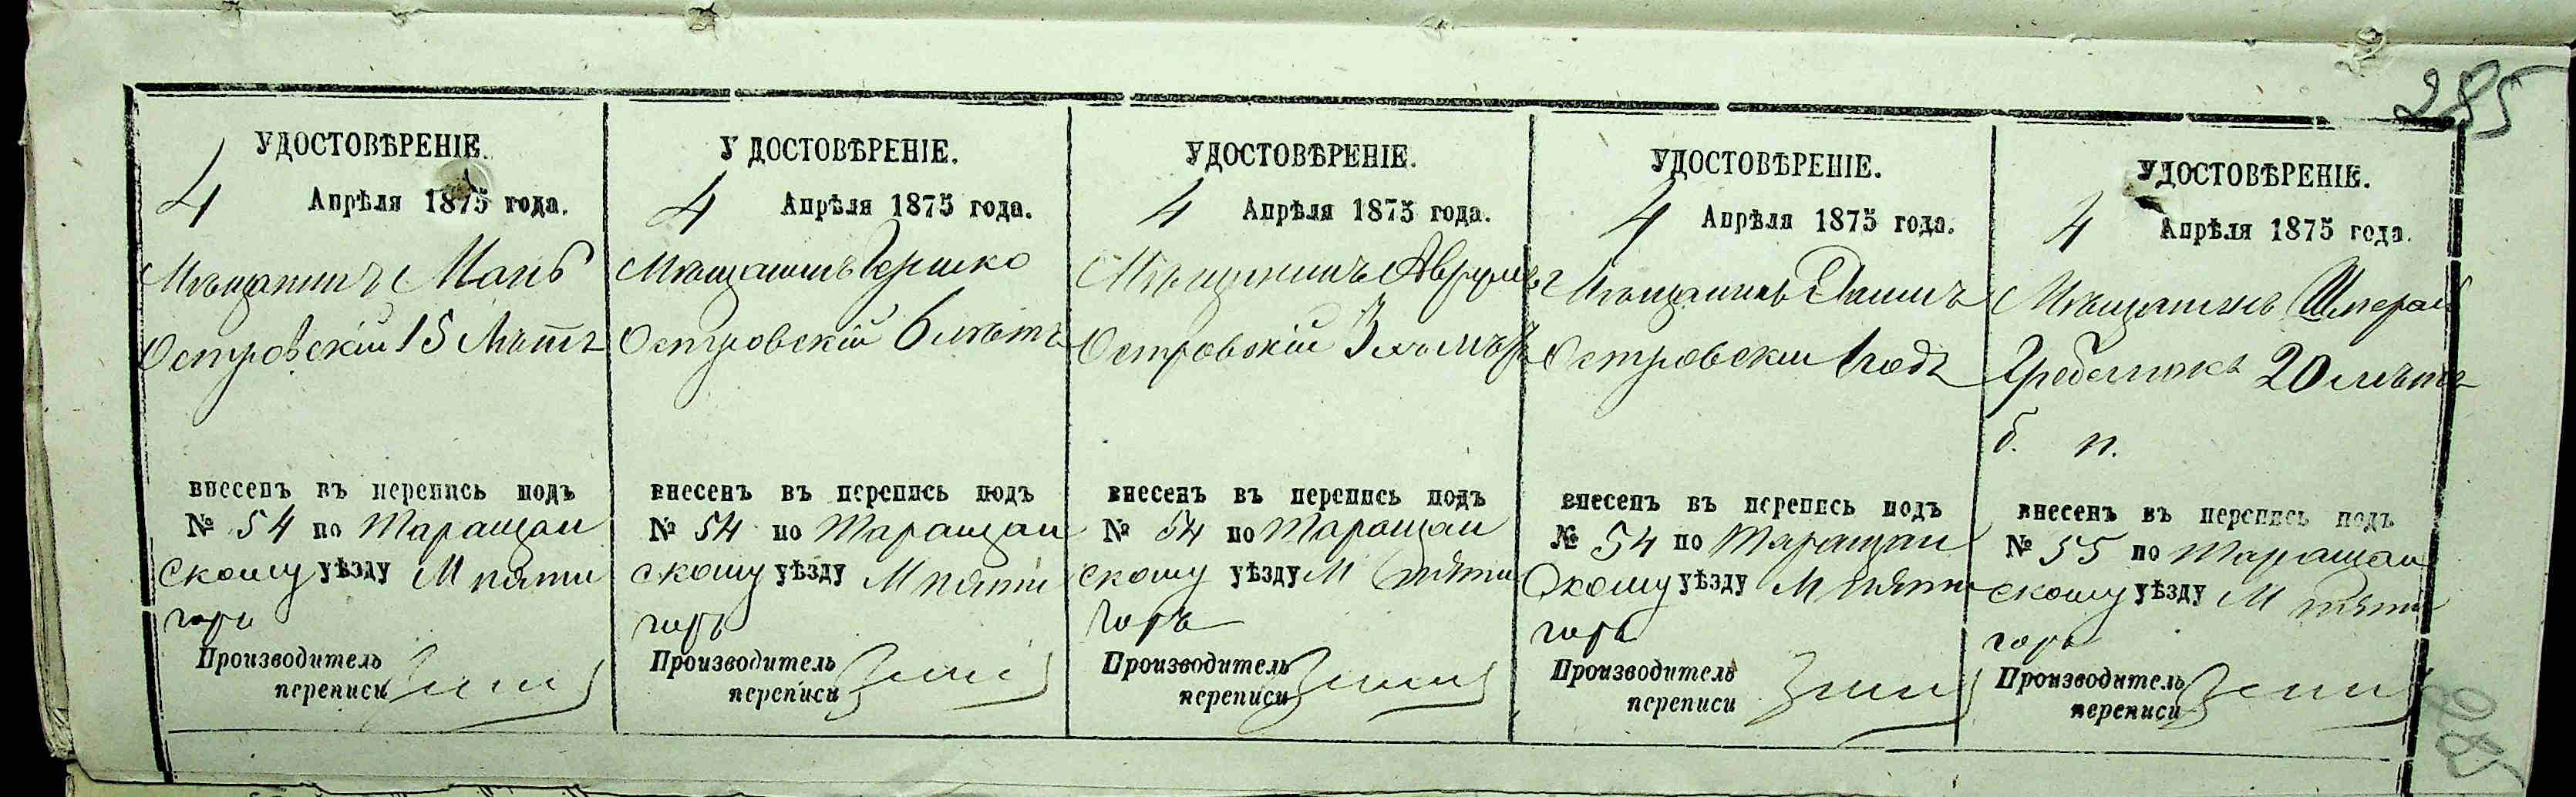 285
УДОСТОВѢРЕНІЕ.
4 Апрѣля 1875 года.
Мѣщанинъ
Островскій 15 лѣтъ
внесенъ въ перепись подъ
№ 54 по Таращан
скому уѣзду М Пяти
горы
Производитель
переписи
УДОСТОВѢРЕНІЕ.
4 Апрѣля 1875 года.
Мѣщанинъ Гершко
Островскій 6 лѣтъ
внесенъ въ перепись подъ
№ 54 по Таращан
скому уѣзду М Пяти
горъ
Производитель
переписи
УДОСТОВѢРЕНІЕ.
4 Апрѣля 1875 года.
Мѣщанинъ Аврумъ
Островскій 3хъ лѣтъ
внесенъ въ перепись подъ
№ 54 по Таращан
скому уѣзду М Пяти
горъ
Производитель
переписи
УДОСТОВѢРЕНІЕ.
4 Апрѣля 1875 года.
Мѣщанинъ
Островскій 1 годъ
внесенъ въ перепись подъ
№ 54 по Таращан
скому уѣзду М Пяти
горъ
Производитель
переписи
УДОСТОВѢРЕНІЕ.
4 Апрѣля 1875 года.
Мѣщанинъ
20 лѣтъ
б. п.
внесенъ въ перепись подъ
№ 55 по Таращан
скому уѣзду М Пяти
горъ
Производитель
переписи